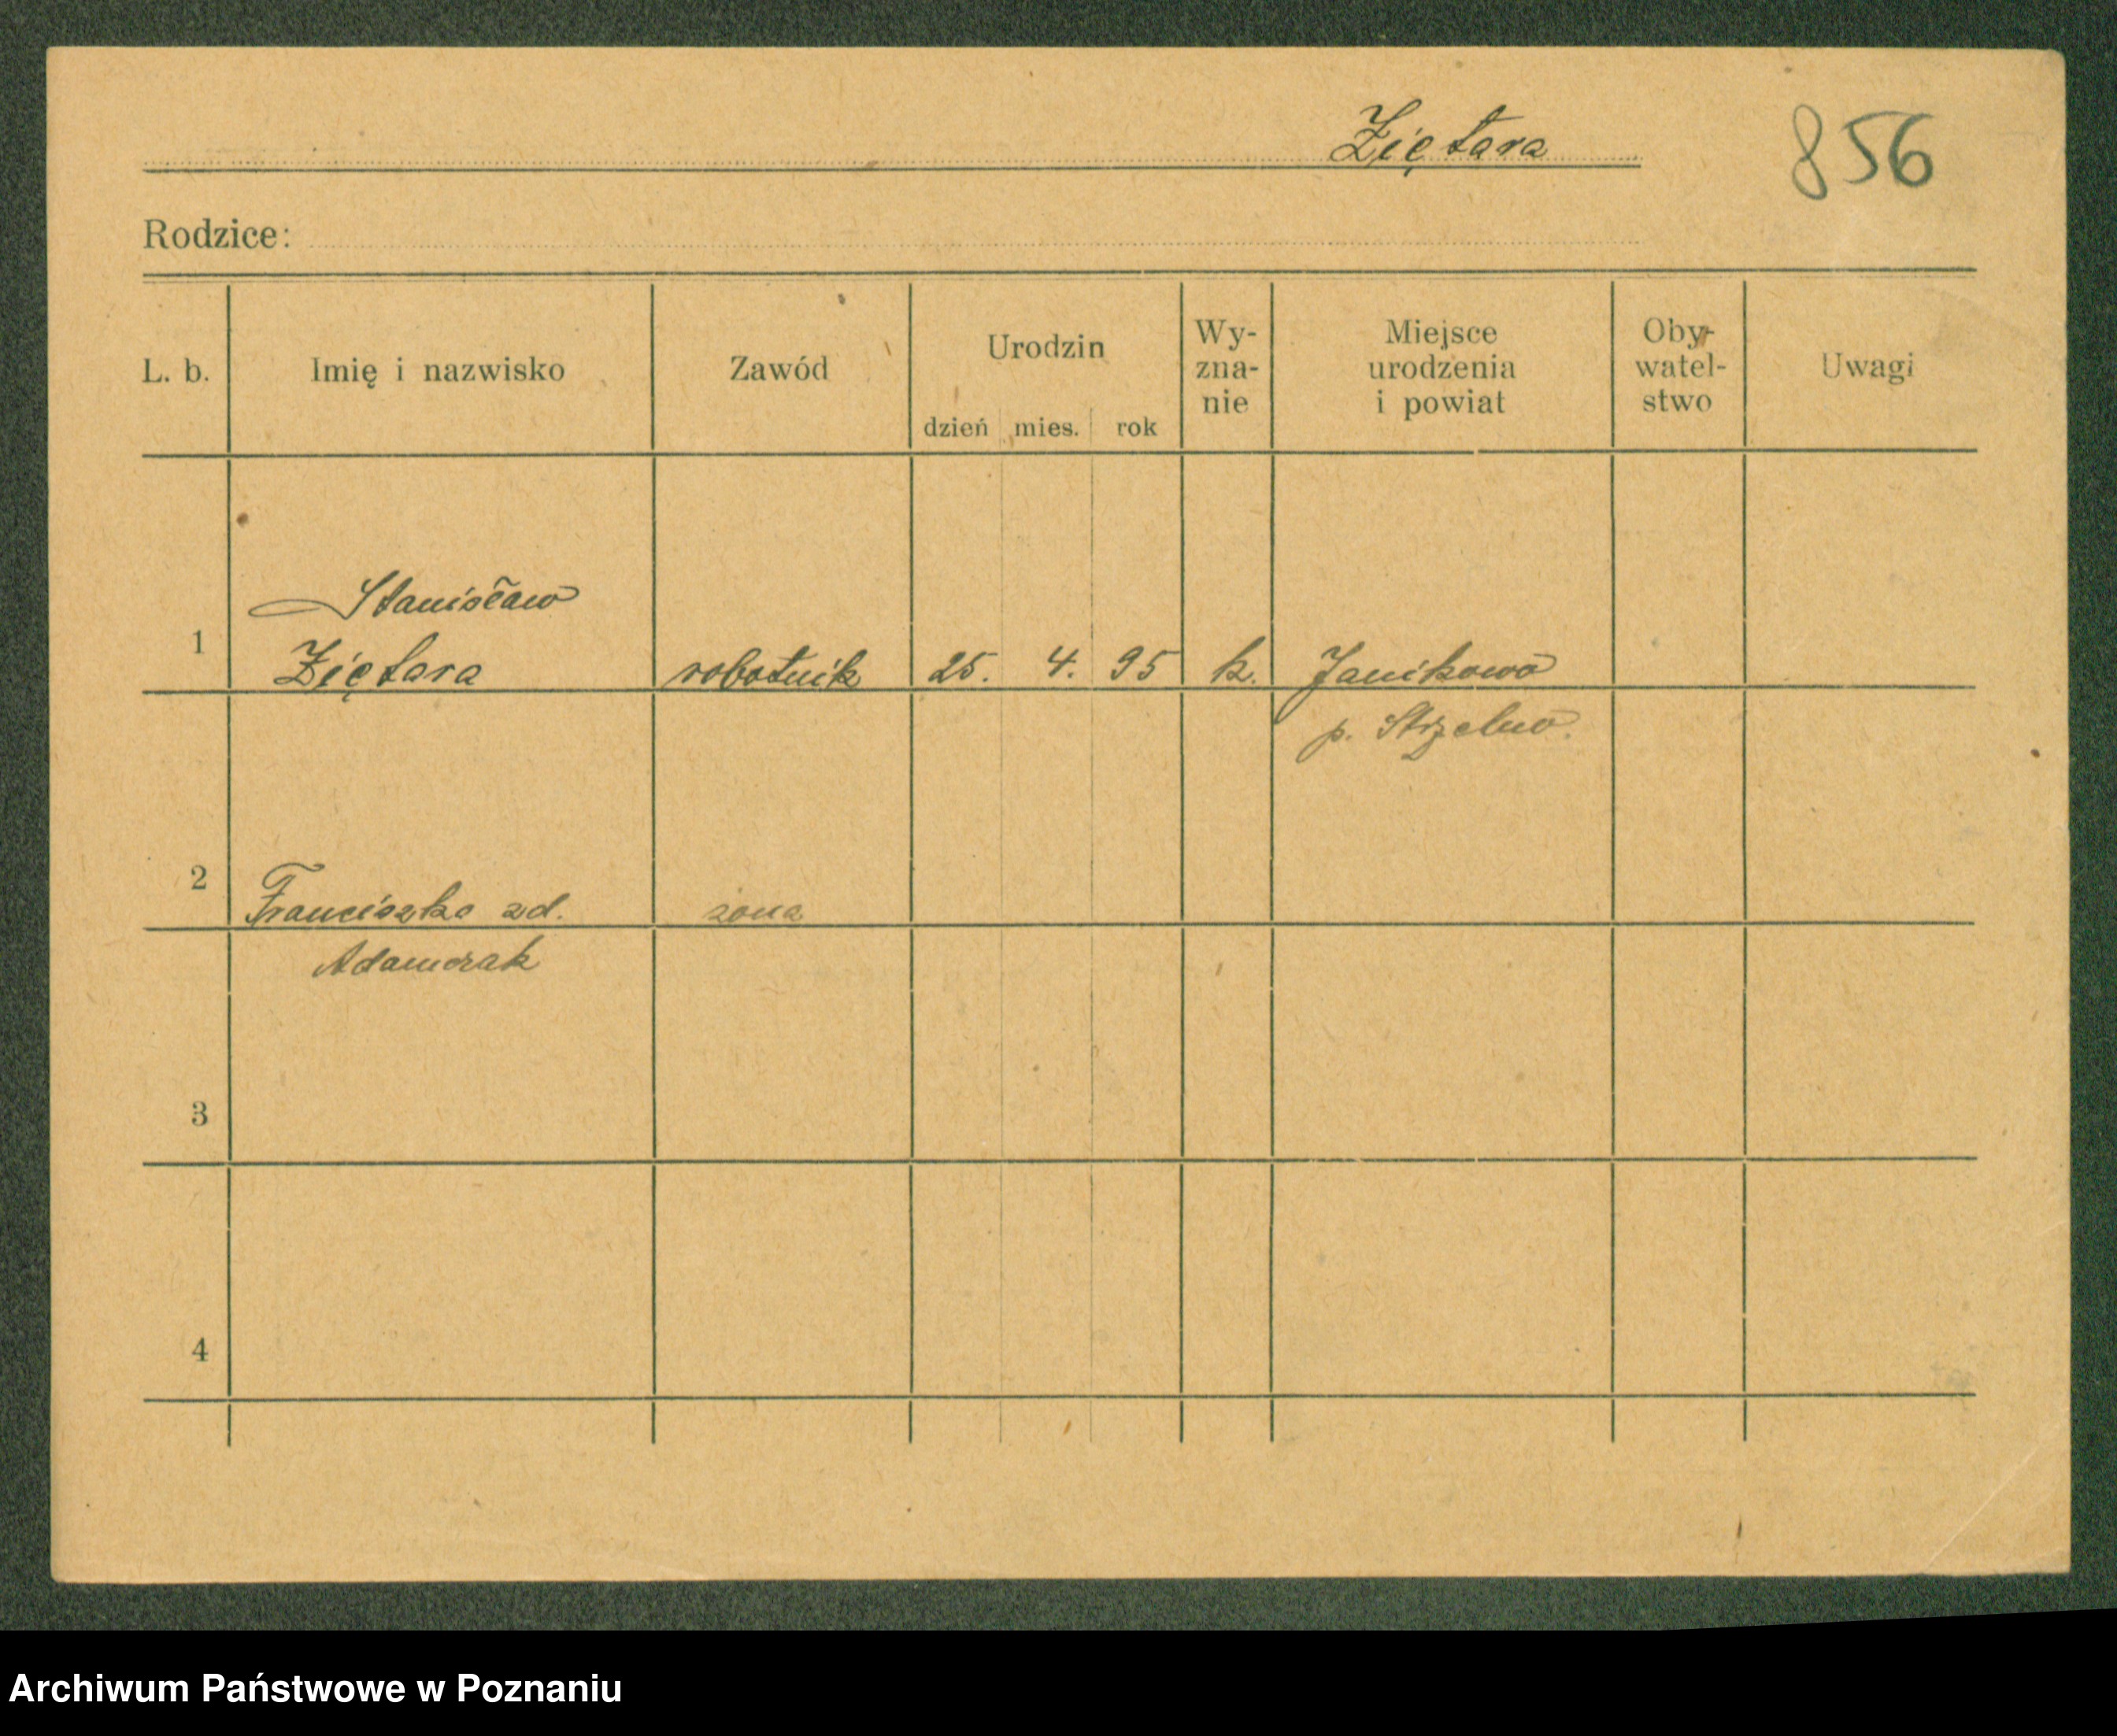 Ziętara
856
Rodzice:
L. b. Imię i nazwisko Zawód Urodzin dzień mies. rok Wy-zna-nie Miejsce urodzenia i powiat Oby-watel-stwo Uwagi
Stanisław
1 Ziętara robotnik 25. 4. 95 k. Janikowo
p. Strzelno.
2 Franciszka zd. żona
Adamczak
3
4
Archiwum Państwowe w Poznaniu